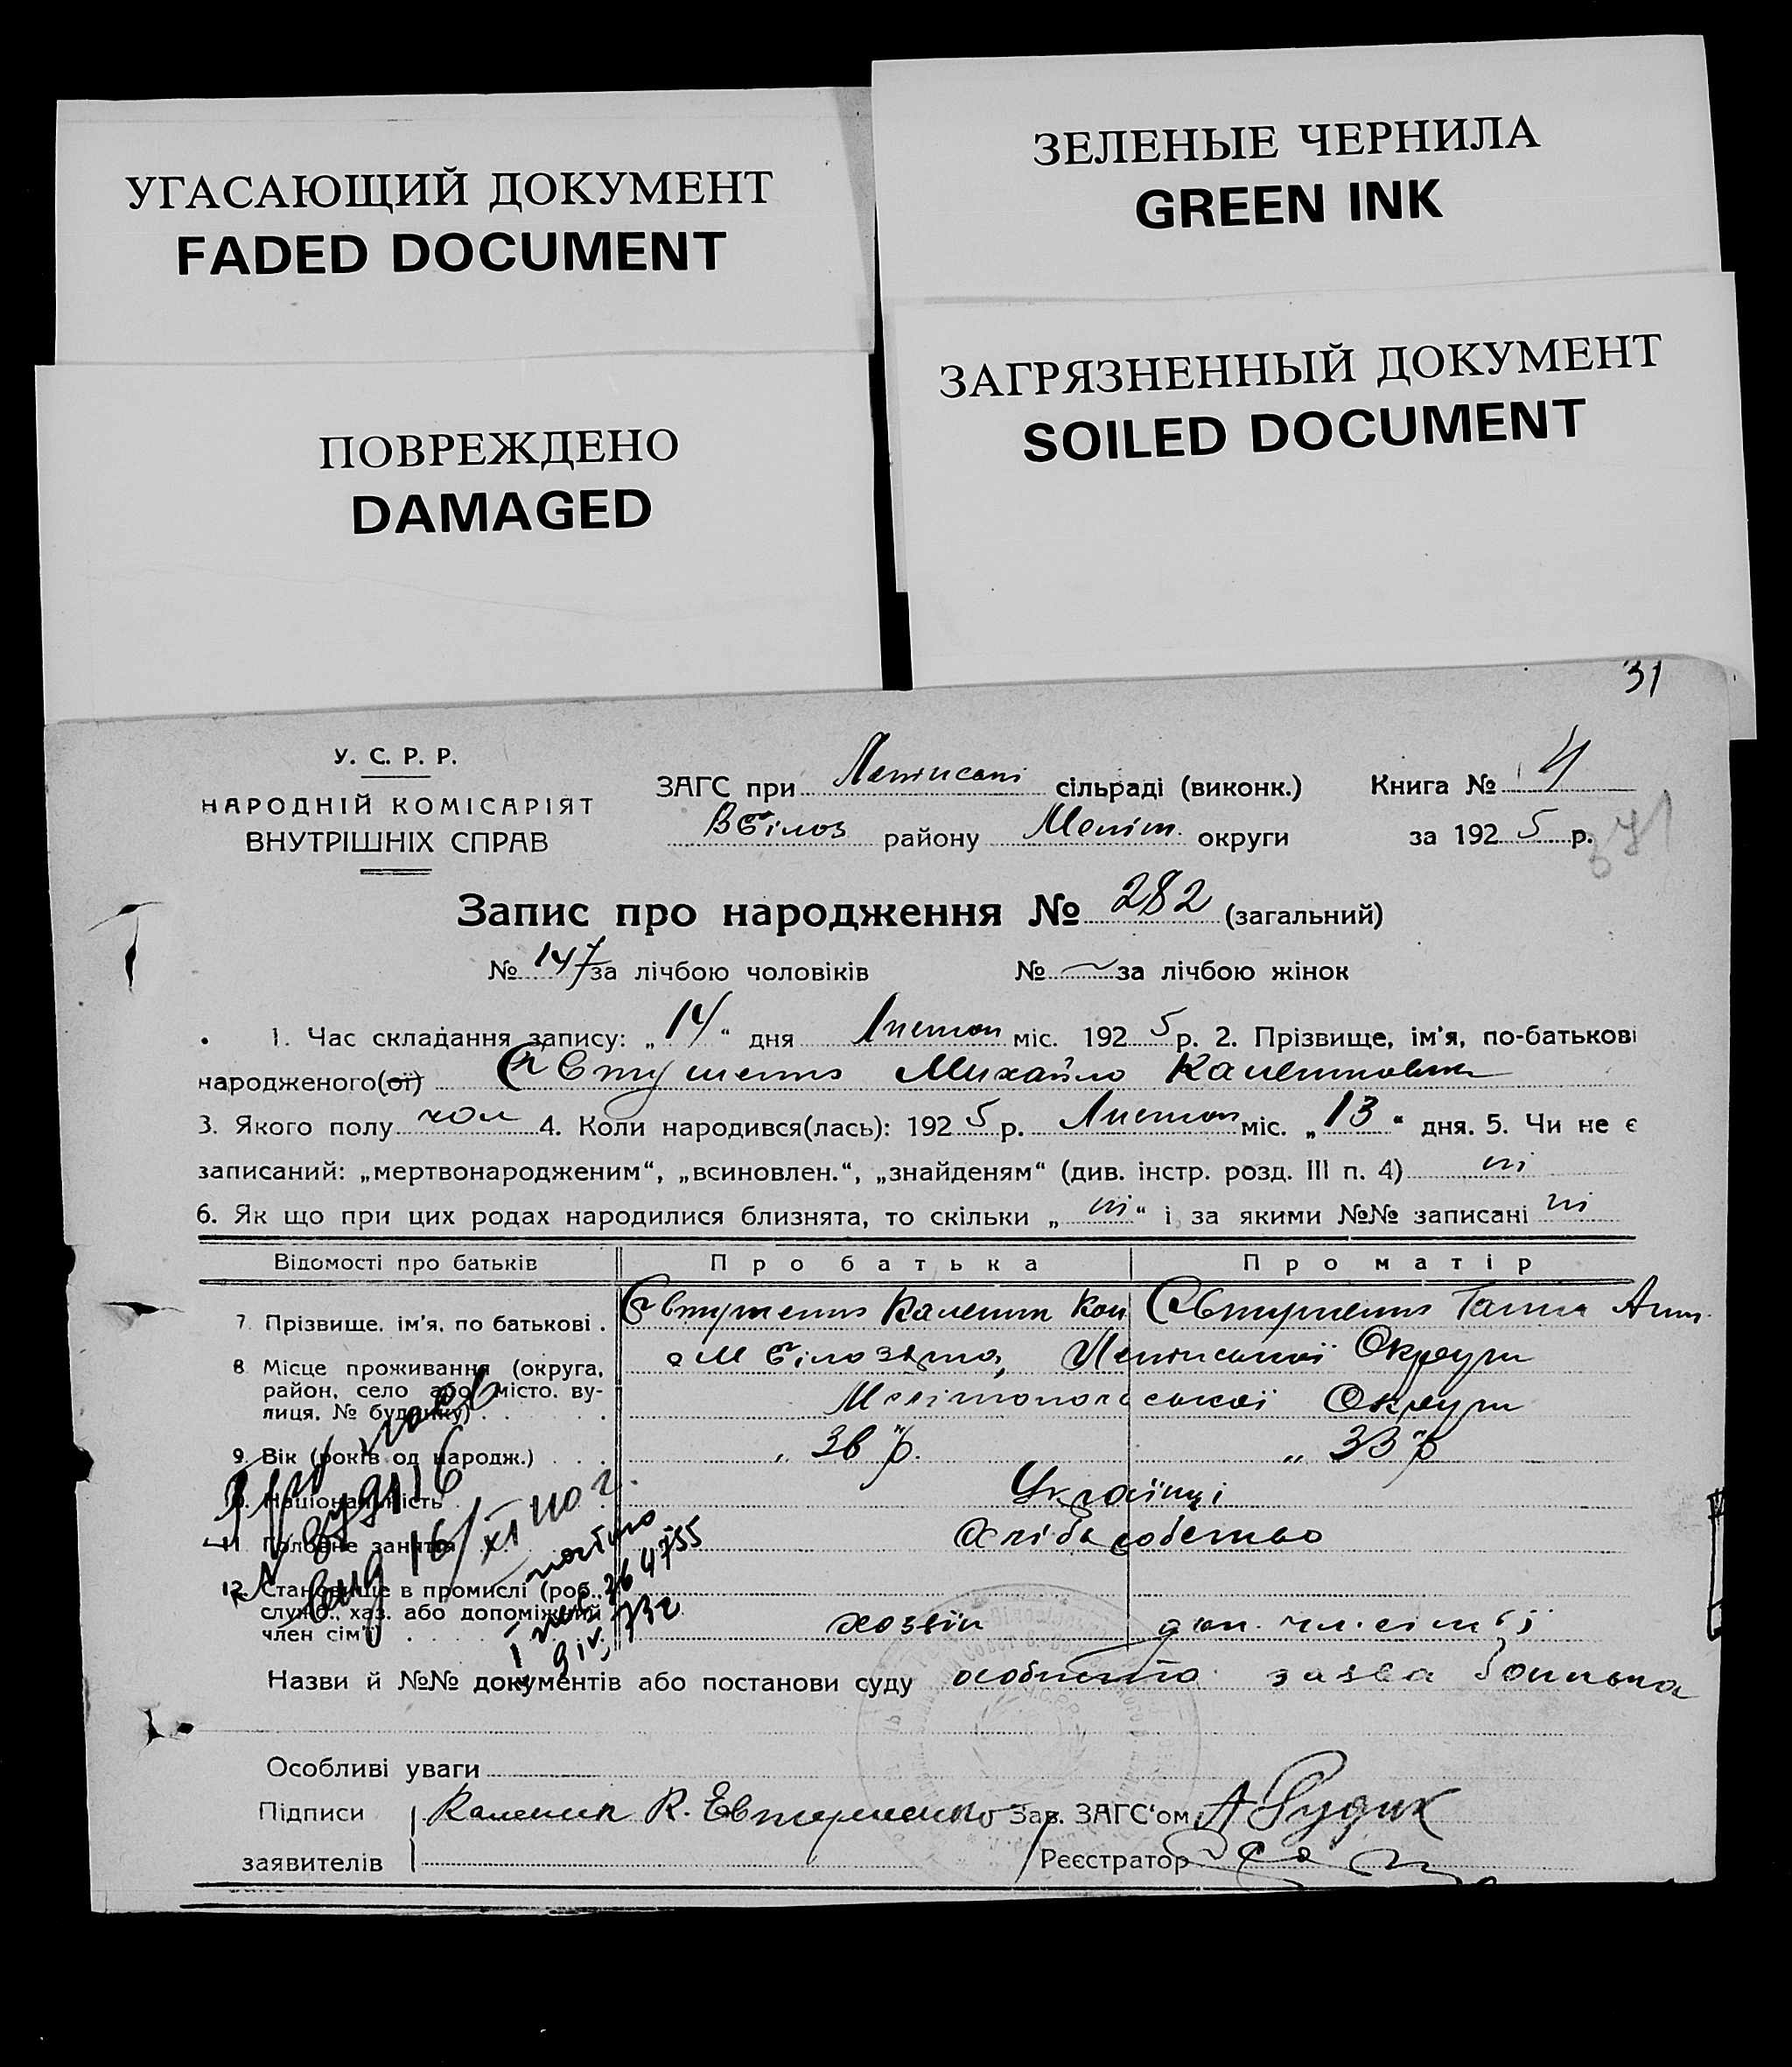 УГАСАЮЩИЙ ДОКУМЕНТ
FADED DOCUMENT
ЗЕЛЕНЫЕ ЧЕРНИЛА
GREEN INK
ПОВРЕЖДЕНО
DAMAGED
ЗАГРЯЗНЕННЫЙ ДОКУМЕНТ
SOILED DOCUMENT
31
У. С. Р. Р.
НАРОДНІЙ КОМІСАРІЯТ
ВНУТРІШНІХ СПРАВ
ЗАГС при сільраді (виконк.) Книга № 4
району Меліт. округи за 192 5 р.
Запис про народження № 282 (загальний)
№ 147 за лічбою чоловіків № за лічбою жінок
1. Час складання запису: „ 14 “ дня міс. 192 5 р. 2. Прізвище, ім'я, по-батькові
народженого(ої) Євтушенко Михайло Каленикович
3. Якого полу чол 4. Коли народився(лась): 192 5 р. Листоп міс. „ 13 “ дня. 5. Чи не є
записаний: „мертвонародженим“, „всиновлен.“, „знайденям“ (див. інстр. розд. III п. 4) ні
6. Як що при цих родах народилися близнята, то скільки „ ні “ і за якими №№ записані ні
Відомості про батьків Про батька Про матір
7. Прізвище, ім'я, по батькові . Євтушенко Каленик Кон Євтушенко Ганна
8. Місце проживання (округа,
район, село або місто, ву-
лиця, № будинку) . Мелітопольської Округи
9. Вік (років од народж.) . . . 36 р. 33 р
10. Національність Українці
11. Головне заняття Хліборобство
12. Становище в промислі (роб.,
служб., хаз. або допоміжний
член сім'ї) хозяїн доп. чл. сімʼї
Назви й №№ документів або постанови суду особисто заява батька
Особливі уваги
Підписи Каленик К. Евтушенко Зав. ЗАГС'ом А Рудик
заявителів Реєстратор